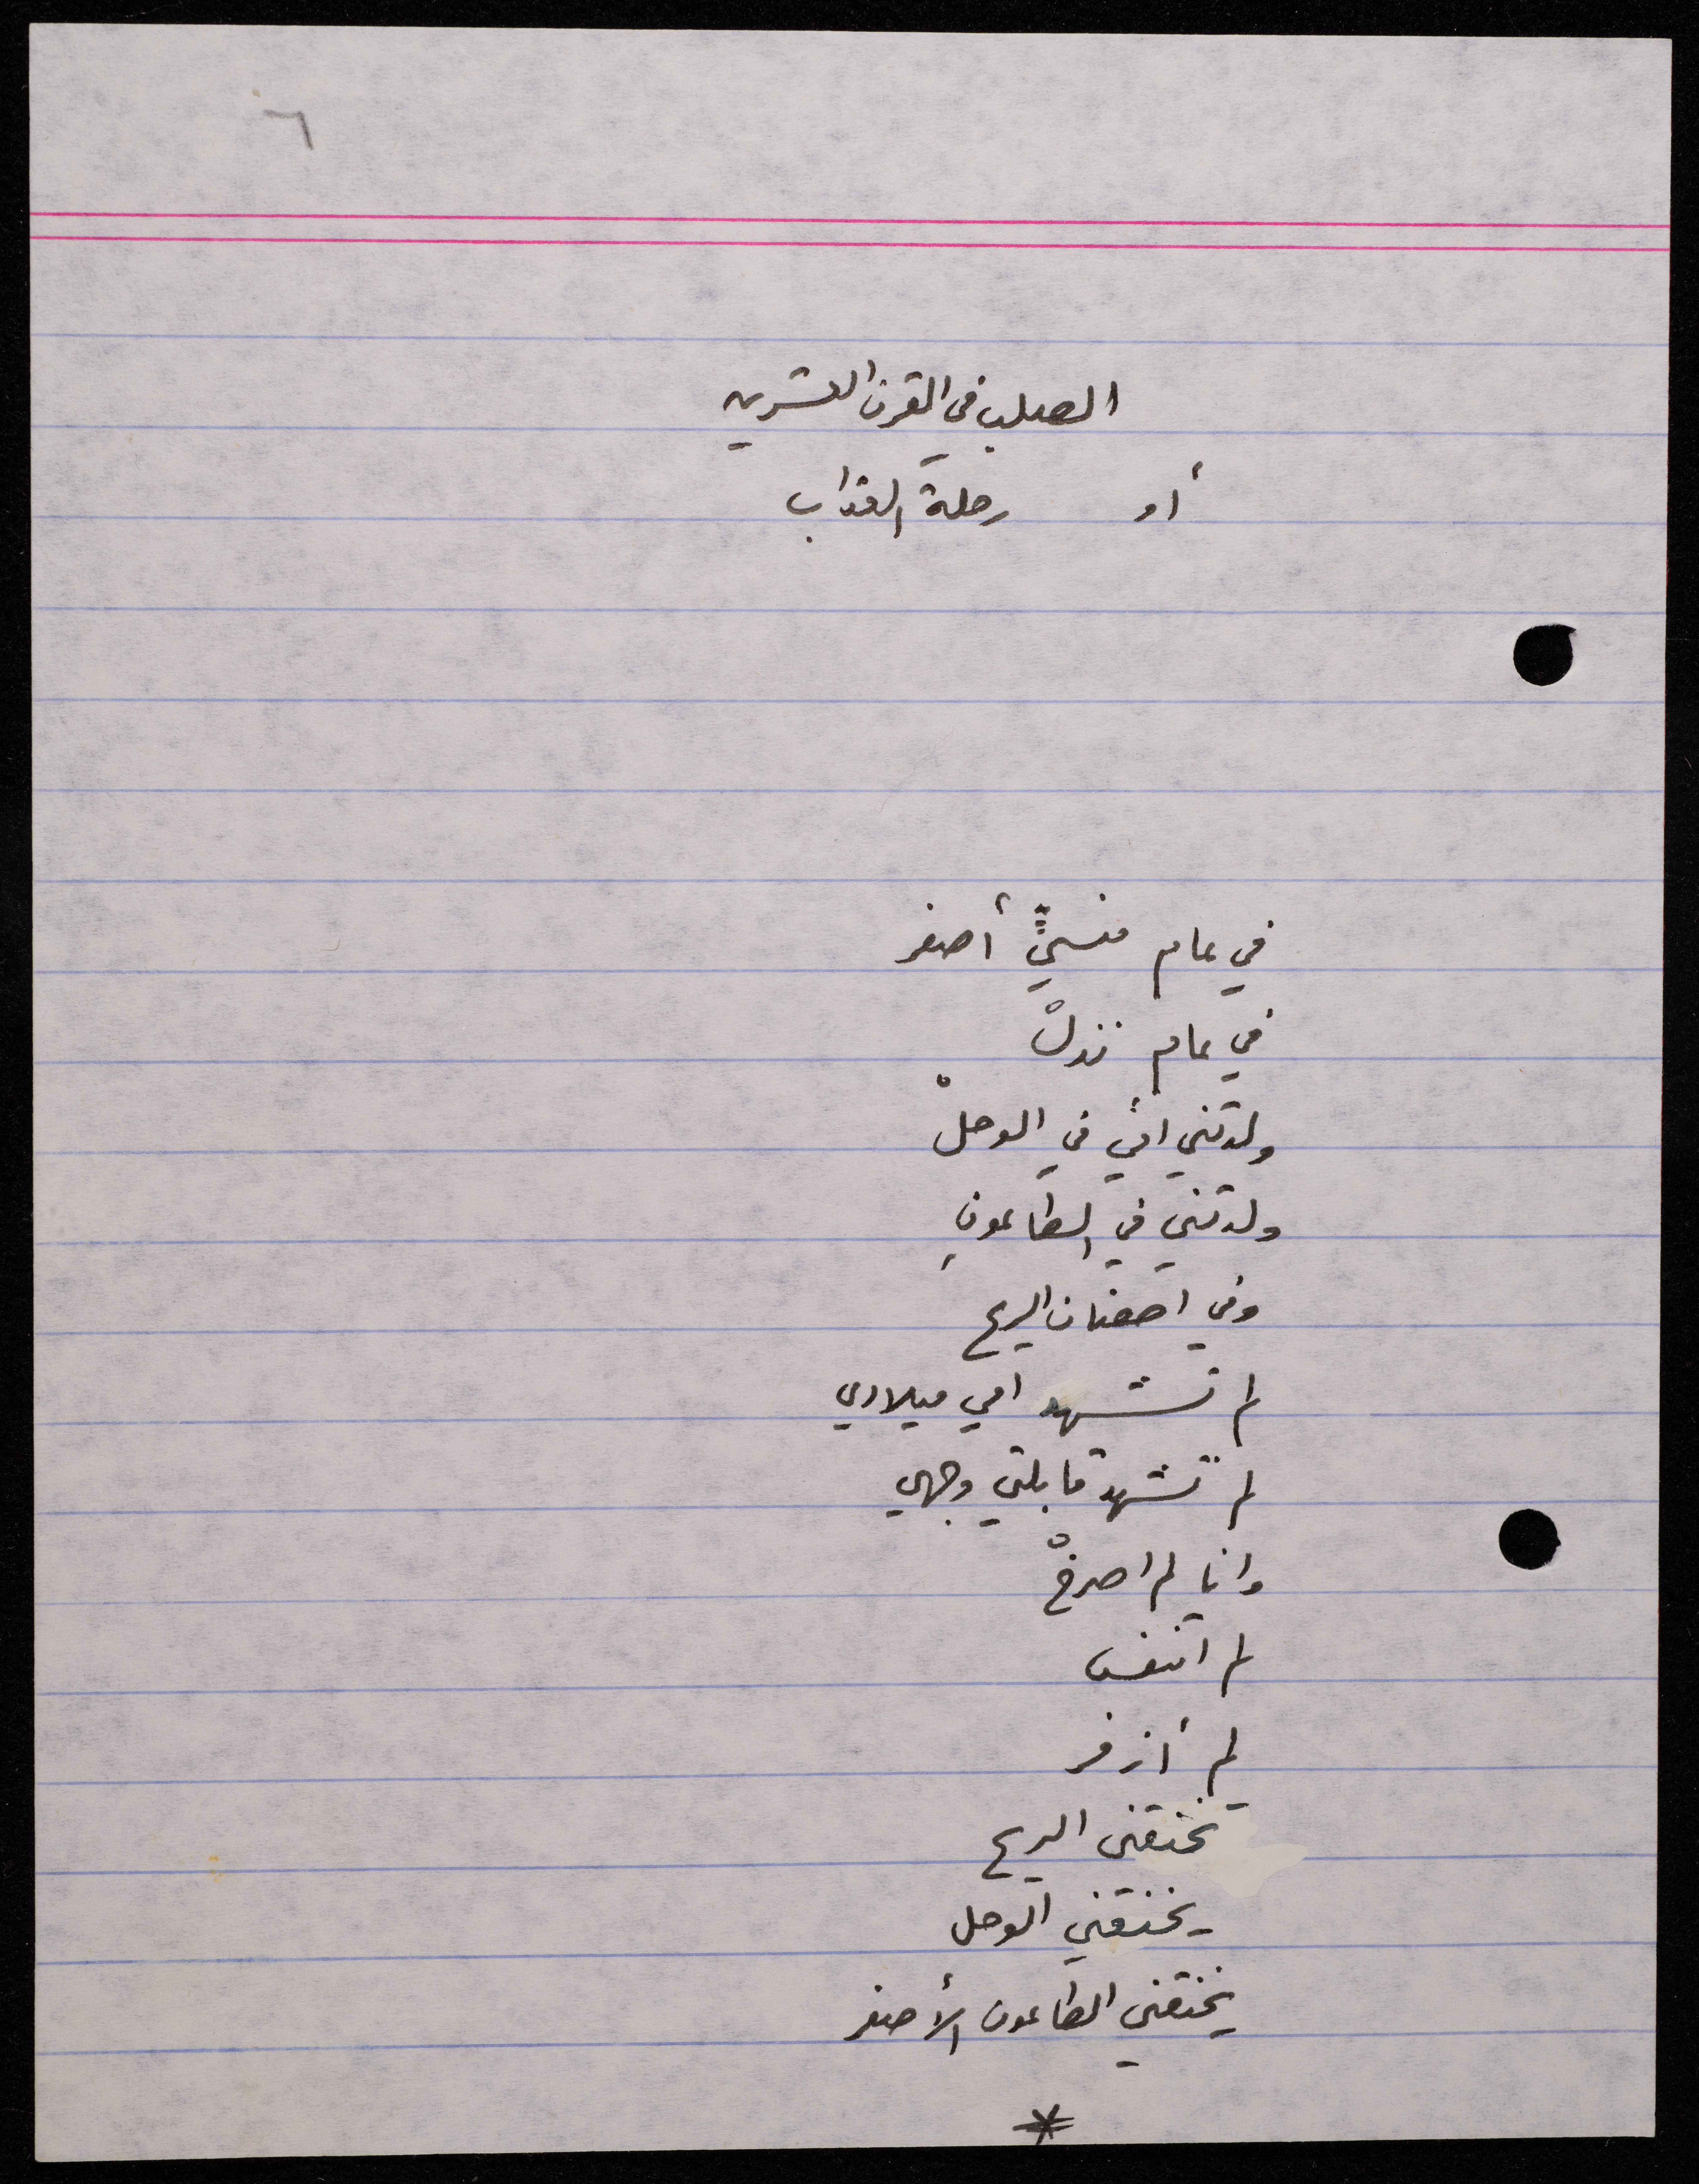 ٦
الصلب في القرن العشرين
أو رحلة العذاب
في عام منسيٍّ أصفر
في عام نذلْ
ولدتني امّي في الوحلْ
ولدتني في الطاعونِ
وفي احضان الريح
لم تشهد امي ميلادي
لم تشهد قابلتي وجهي
وانا لم اصرخْ
لم اتنفس
لم أزفر
تخنقني الريح
يخنقني الوحل
يخنقني الطاعون الأصفر
*